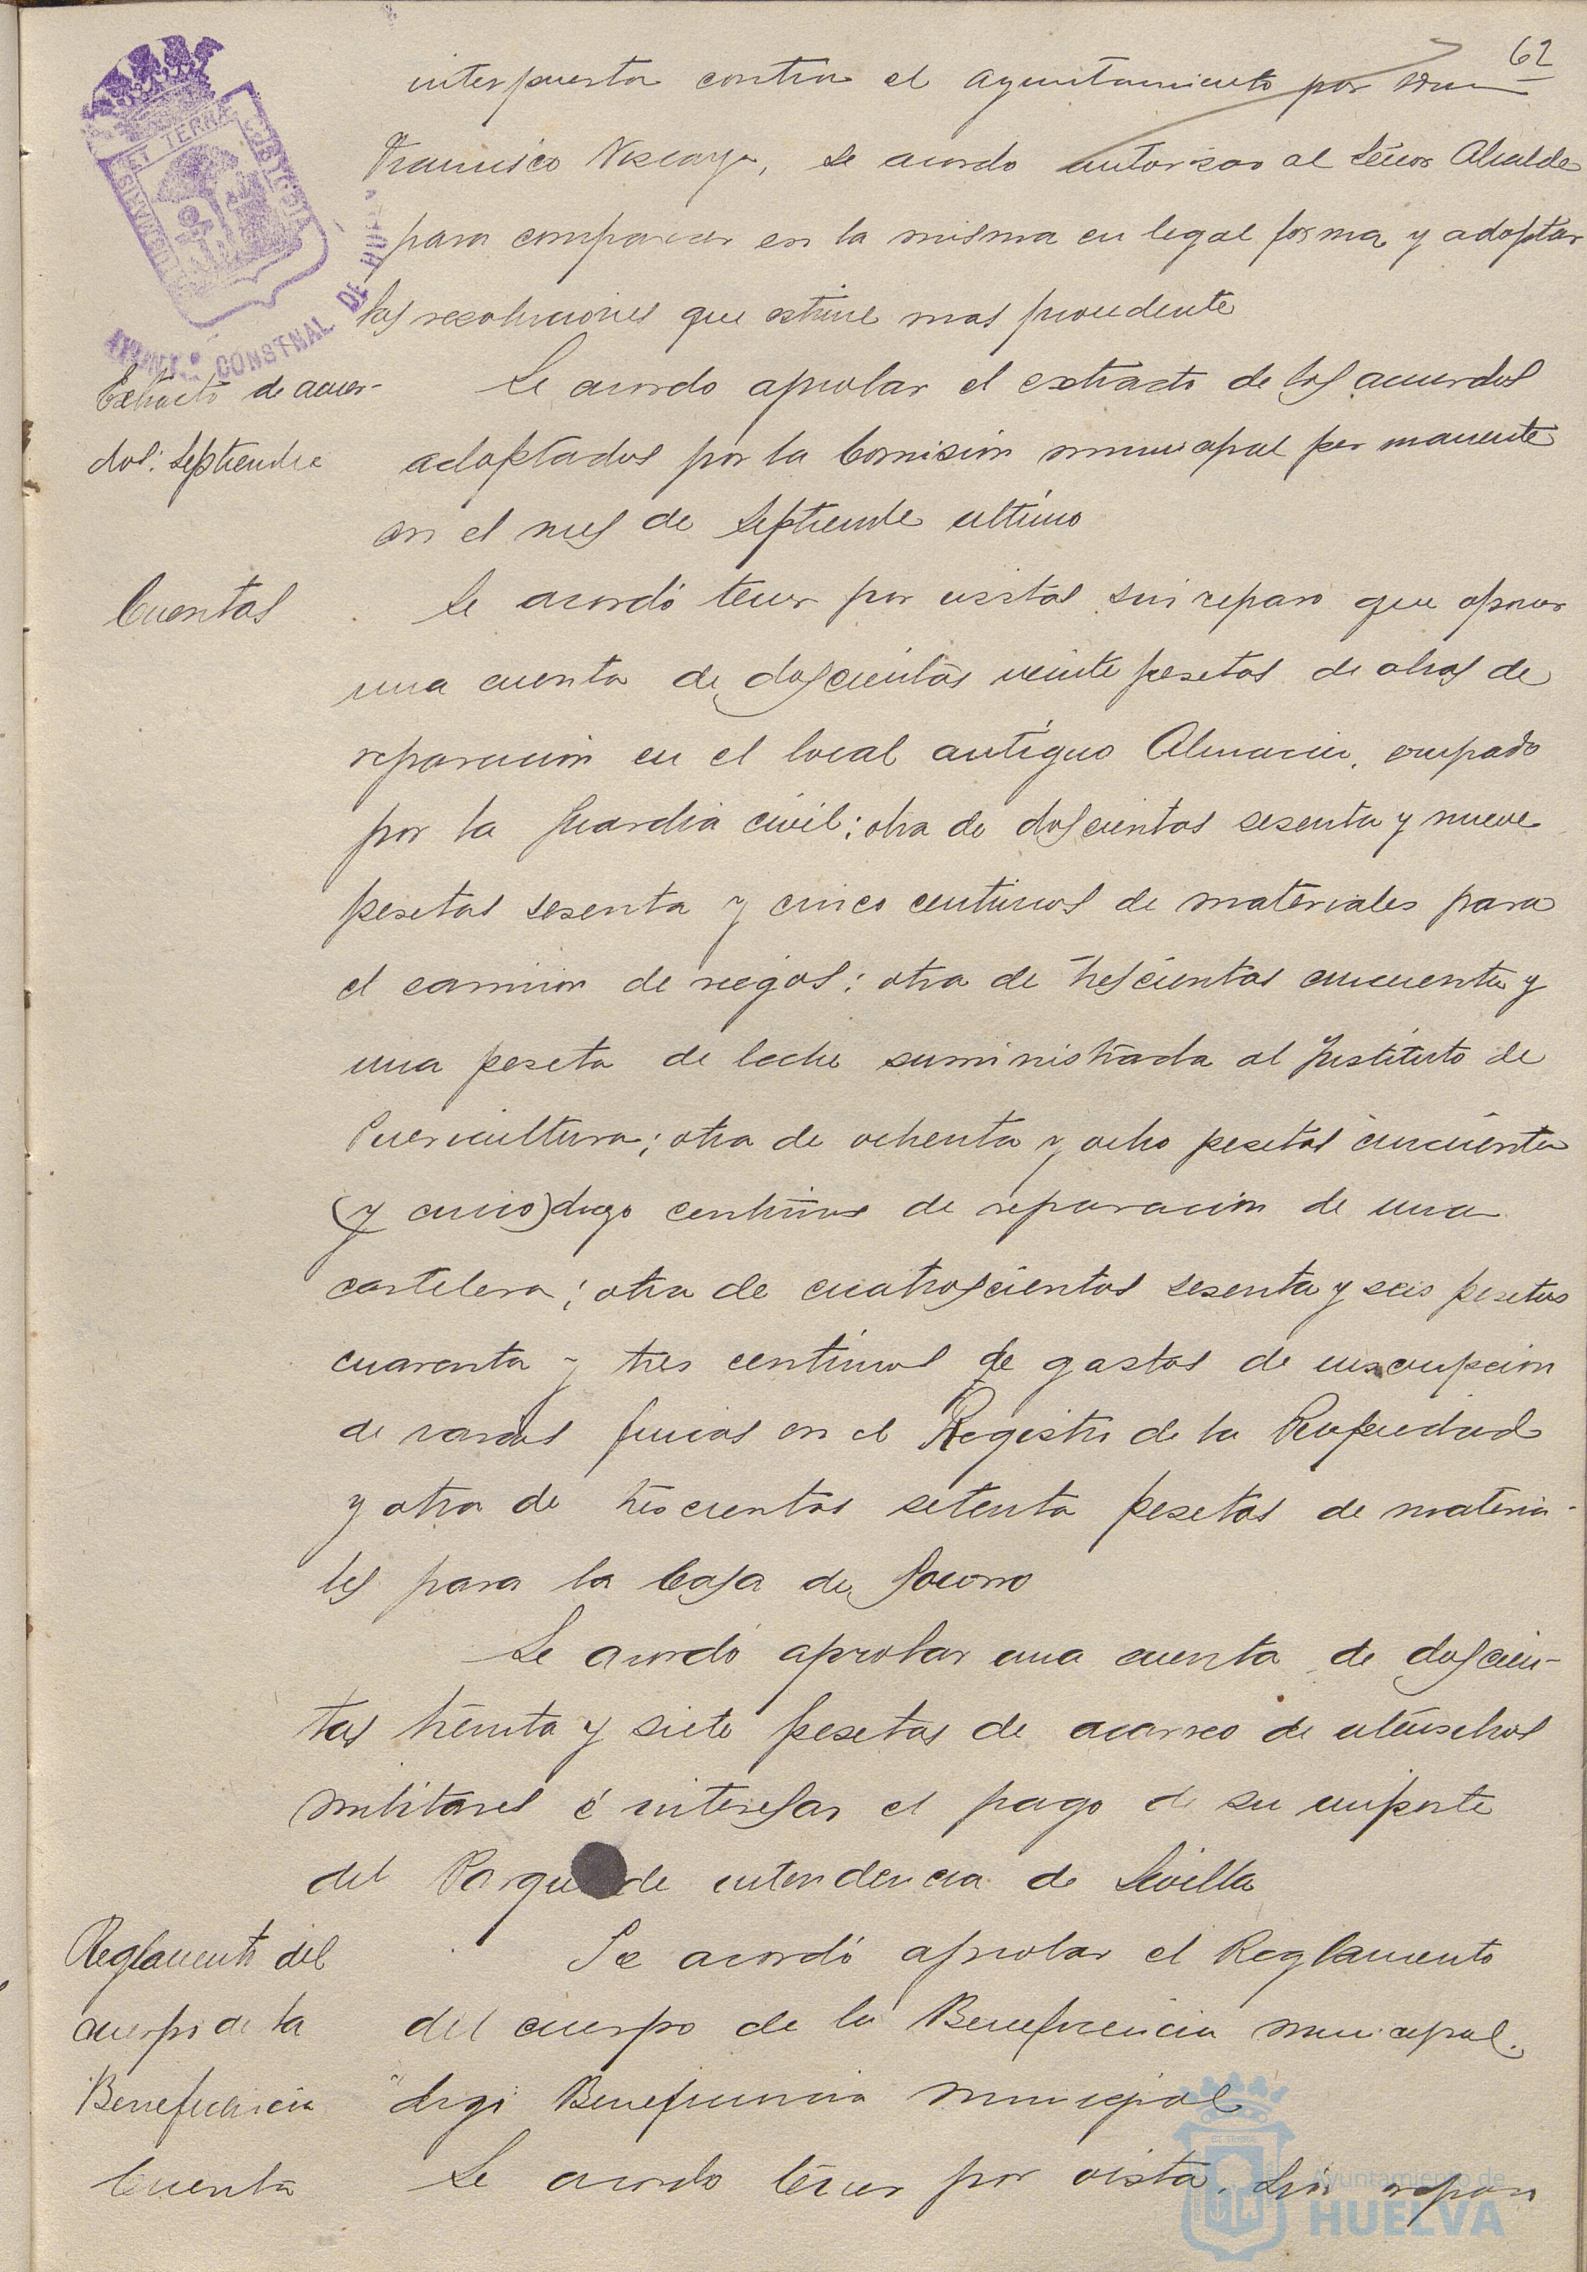 62
interpuesta contra el Ayuntamiento por Don
Francisco Vizcaya, se acordo autorizar al Señor Alcalde
para comparecer en la misma en legal forma y adoptar
las resoluciones que estime mas procedente
Extracto de acuer-
dos: Septiembre
Se acordo aprobar el extracto de los acuerdos
adoptados por la Comisión municipal permanente
en el mes de Septiembre último
Cuentas
Se acordó tener por vistas sin reparo que oponer
una cuenta de doscientas veinte pesetas de obras de
reparación en el local antiguo Almacen, ocupado
por la Guardia civil; otra de doscientas sesenta y nueve
pesetas sesenta y cinco centimos de materiales para
el camion de riegos; otra de trescientas cincuenta y
una peseta de leche suministrada al Instituto de
Puericultura; otra de ochenta y ocho pesetas cincuenta
(y cinco) digo centimos de reparación de una
cartelera; otra de cuatroscientas sesenta y seis pesetas
cuarenta y tres centimos de gastos de inscripcion
de varias fincas en el Registro de la Propiedad
y otra de trescientas setenta pesetas de materia-
les para la Casa de Socorro
Se acordó aprobar una cuenta de doscien-
tas treinta y siete pesetas de acarreo de utensilios
militares é interesar el pago de su importe
del Parque de intendencia de Sevilla
Reglamento del
cuerpo de la
Beneficencia
Se acordó aprobar el Reglamento
del cuerpo de la Beneficencia municipal.
digo Beneficencia municipal
Cuenta
Se acordo tener por vista, sin reparo
AYUNT. CONSTNAL DE HUELVA
ET TERRA CUSTODIA
Ayuntamiento de
HUELVA